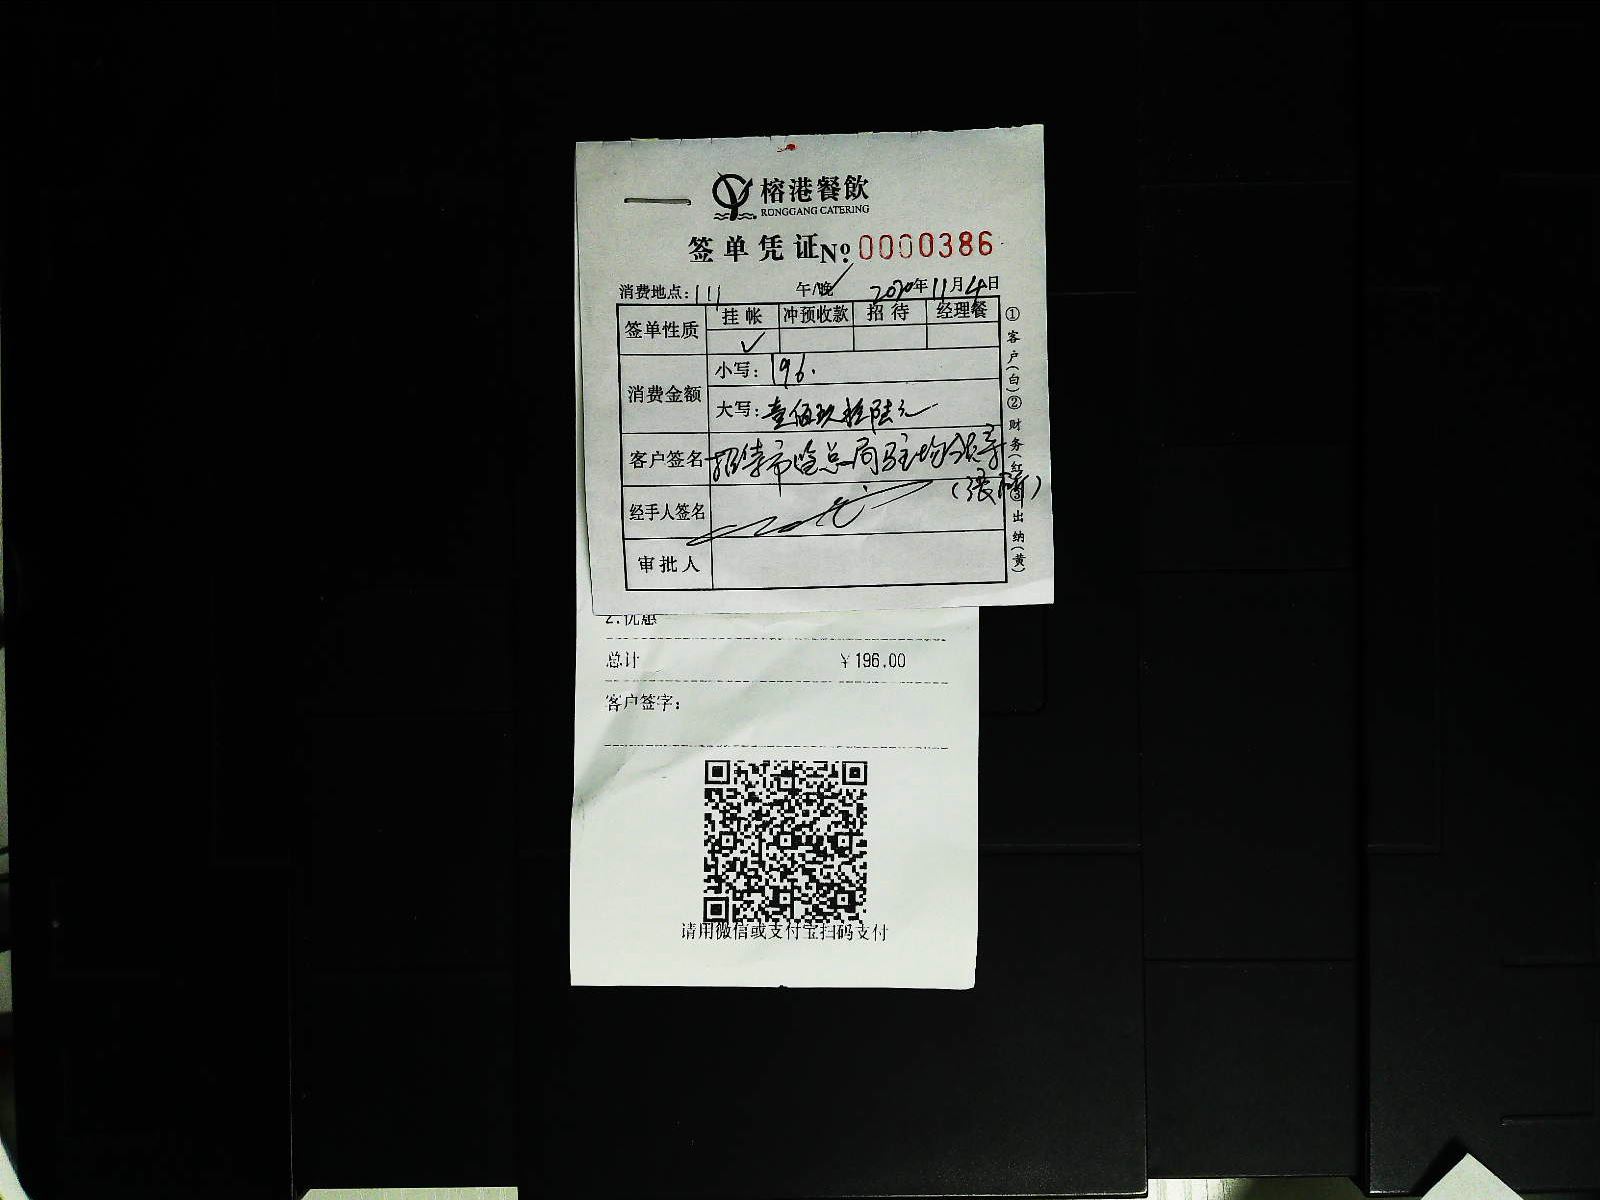 榕港餐飲
RONGGANG CATERING
签单凭证 No: 0000386
消费地点: 111 午/晚 2020年11月4日
签单性质 挂帐 冲预收款 招待 经理餐
✓
消费金额 小写: 196.
大写: 壹佰玖拾陆元
客户签名 招待市监总局驻场领导
(张
经手人签名
审批人
①客户(白)②财务(红)③出纳(黄)
2.优惠
总计 ¥196.00
客户签字:
请用微信或支付宝扫码支付